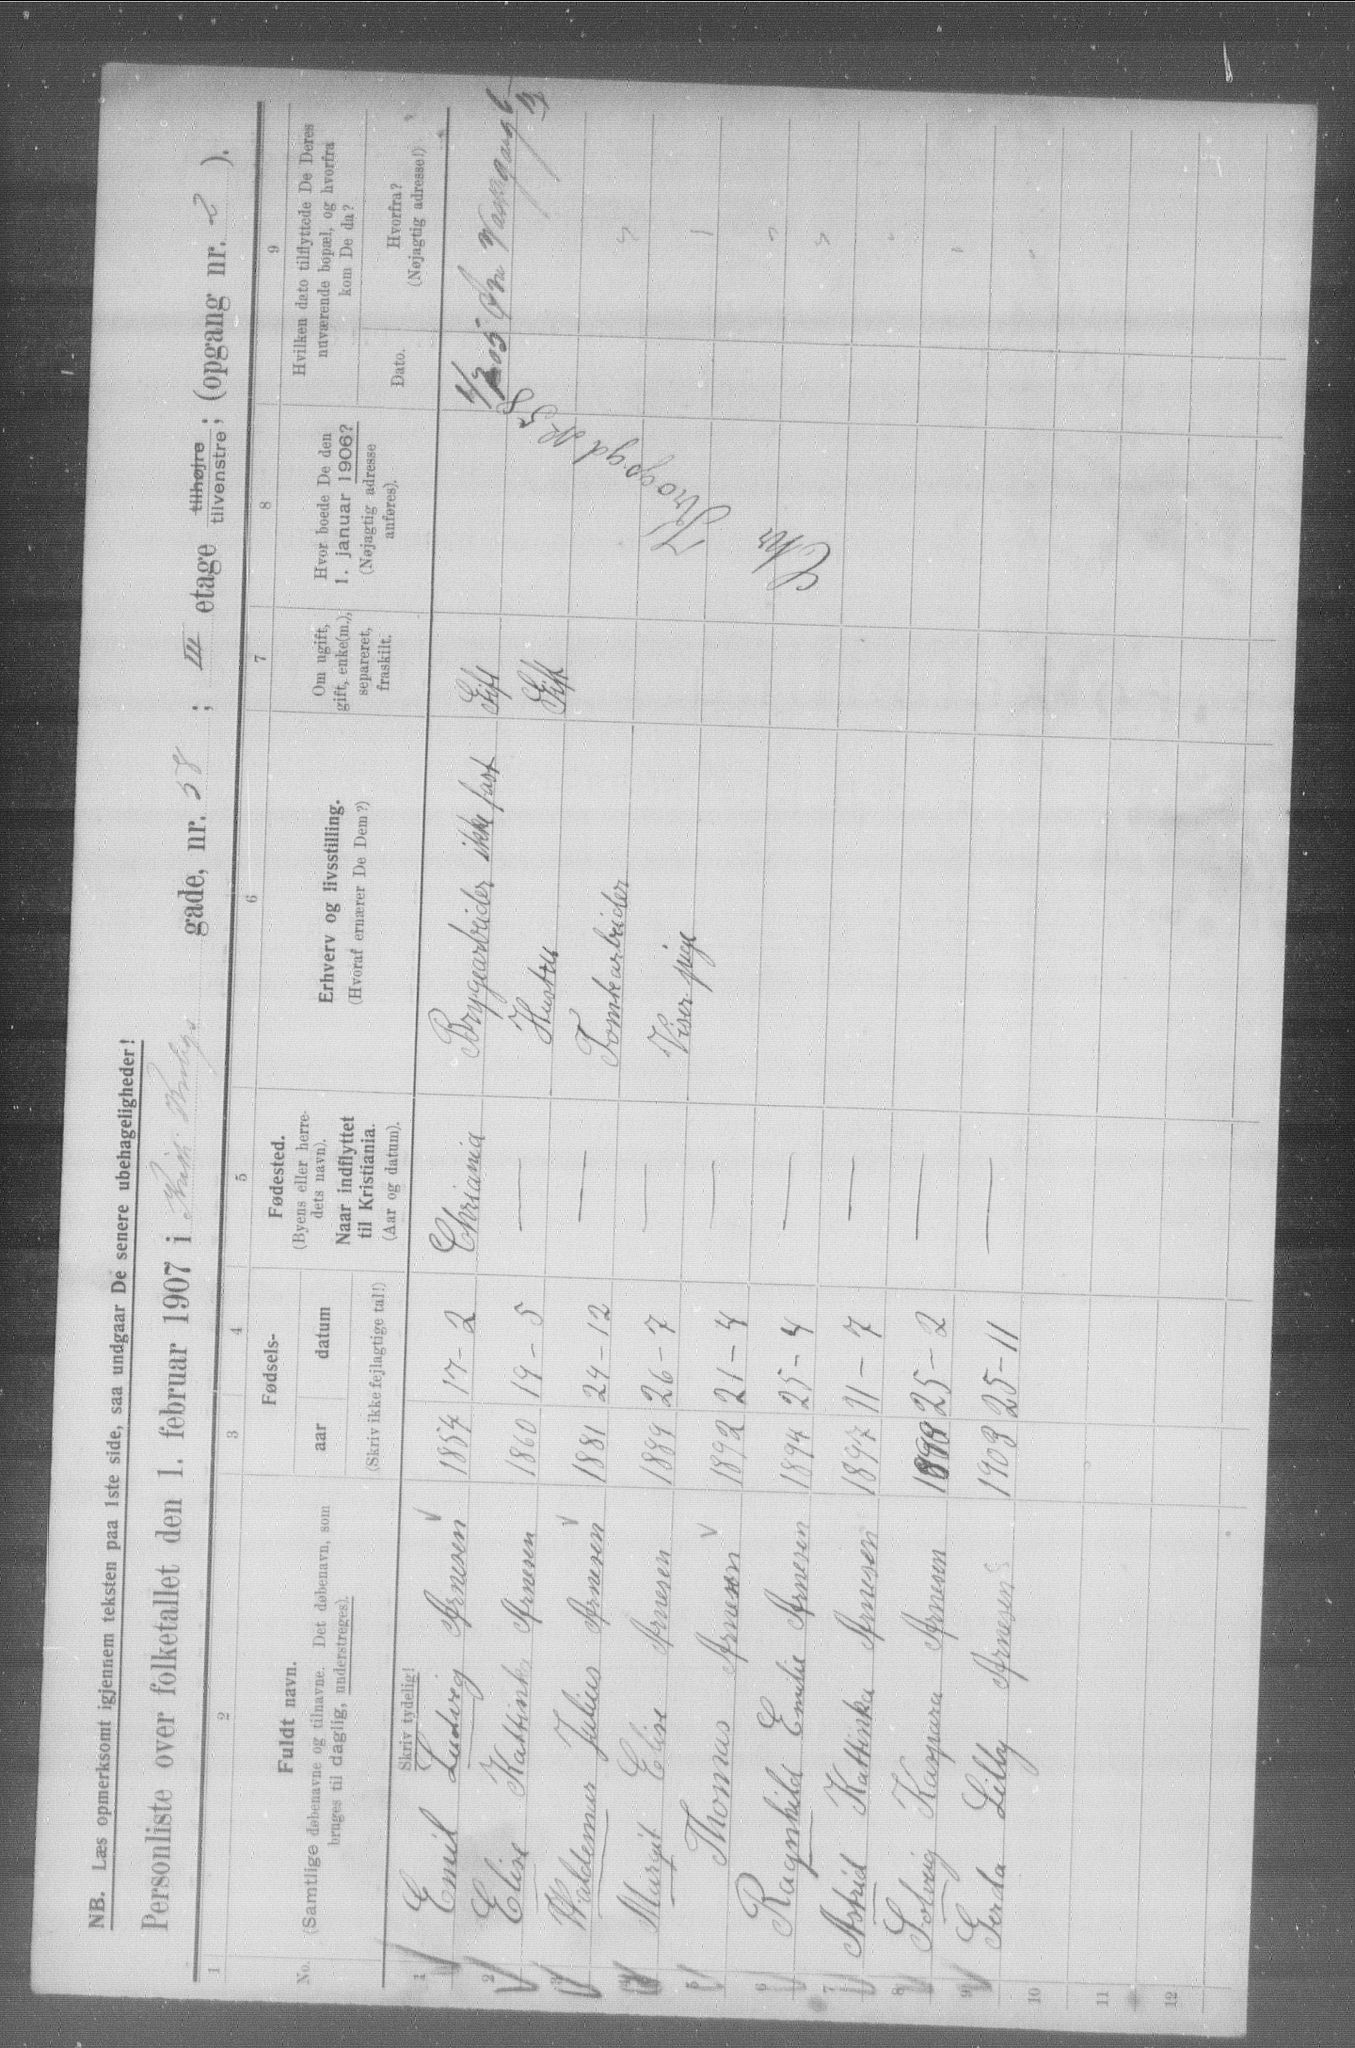 NB. Læs opmerksomt igjennem teksten paa 1ste side, saa undgaar De senere ubehageligheder!
Personliste over folketallet den 1. februar 1907 i gade, nr. 58; III etage tilhøjre tilvenstre; (opgang nr. 2).
1 2 3 4 5 6 7 8 9
No.
Fuldt navn.
(Samtlige døbenavne og tilnavne. Det døbenavn, som
bruges til daglig, understreges).
Skriv tydelig!
Fødsels-
aar datum
(Skriv ikke fejlagtige tal!)
Fødested.
(Byens eller herre-
dets navn).
Naar indflyttet
til Kristiania.
(Aar og datum).
Erhverv og livsstilling.
(Hvoraf ernærer De Dem?)
Om ugift,
gift, enke(m.),
separeret,
fraskilt.
Hvor boede De den
1. januar 1906?
(Nøjagtig adresse
anføres).
Hvilken dato tilflyttede De Deres
nuværende bopæl, og hvorfra
kom De da?
Dato.
Hvorfra?
(Nøjagtig adresse!)
1 Emil Ludvig Arnesen 1854 17-2 Chriania Brygearbeider ikke fast Gift
2 Elise Kattinka Arnesen 1860 19-5 — Hustru Gift
3 Waldemar Julius Arnesen 1881 24-12 — Tomtearbeider
4 Margit Elise Arnesen 1889 26-7 — Viserpige
5 Thomas Arnesen 1892 21-4 —
6 Ragnhild Emilie Arnesen 1894 25-4 —
7 Astrid Kattinka Arnesen 1897 11-7 —
8 Solveig Kaspara Arnesen 1899 25-2 —
9 Gerda Lilly Arnesen 1903 25-11 —
10
11
12
No 58
Chr